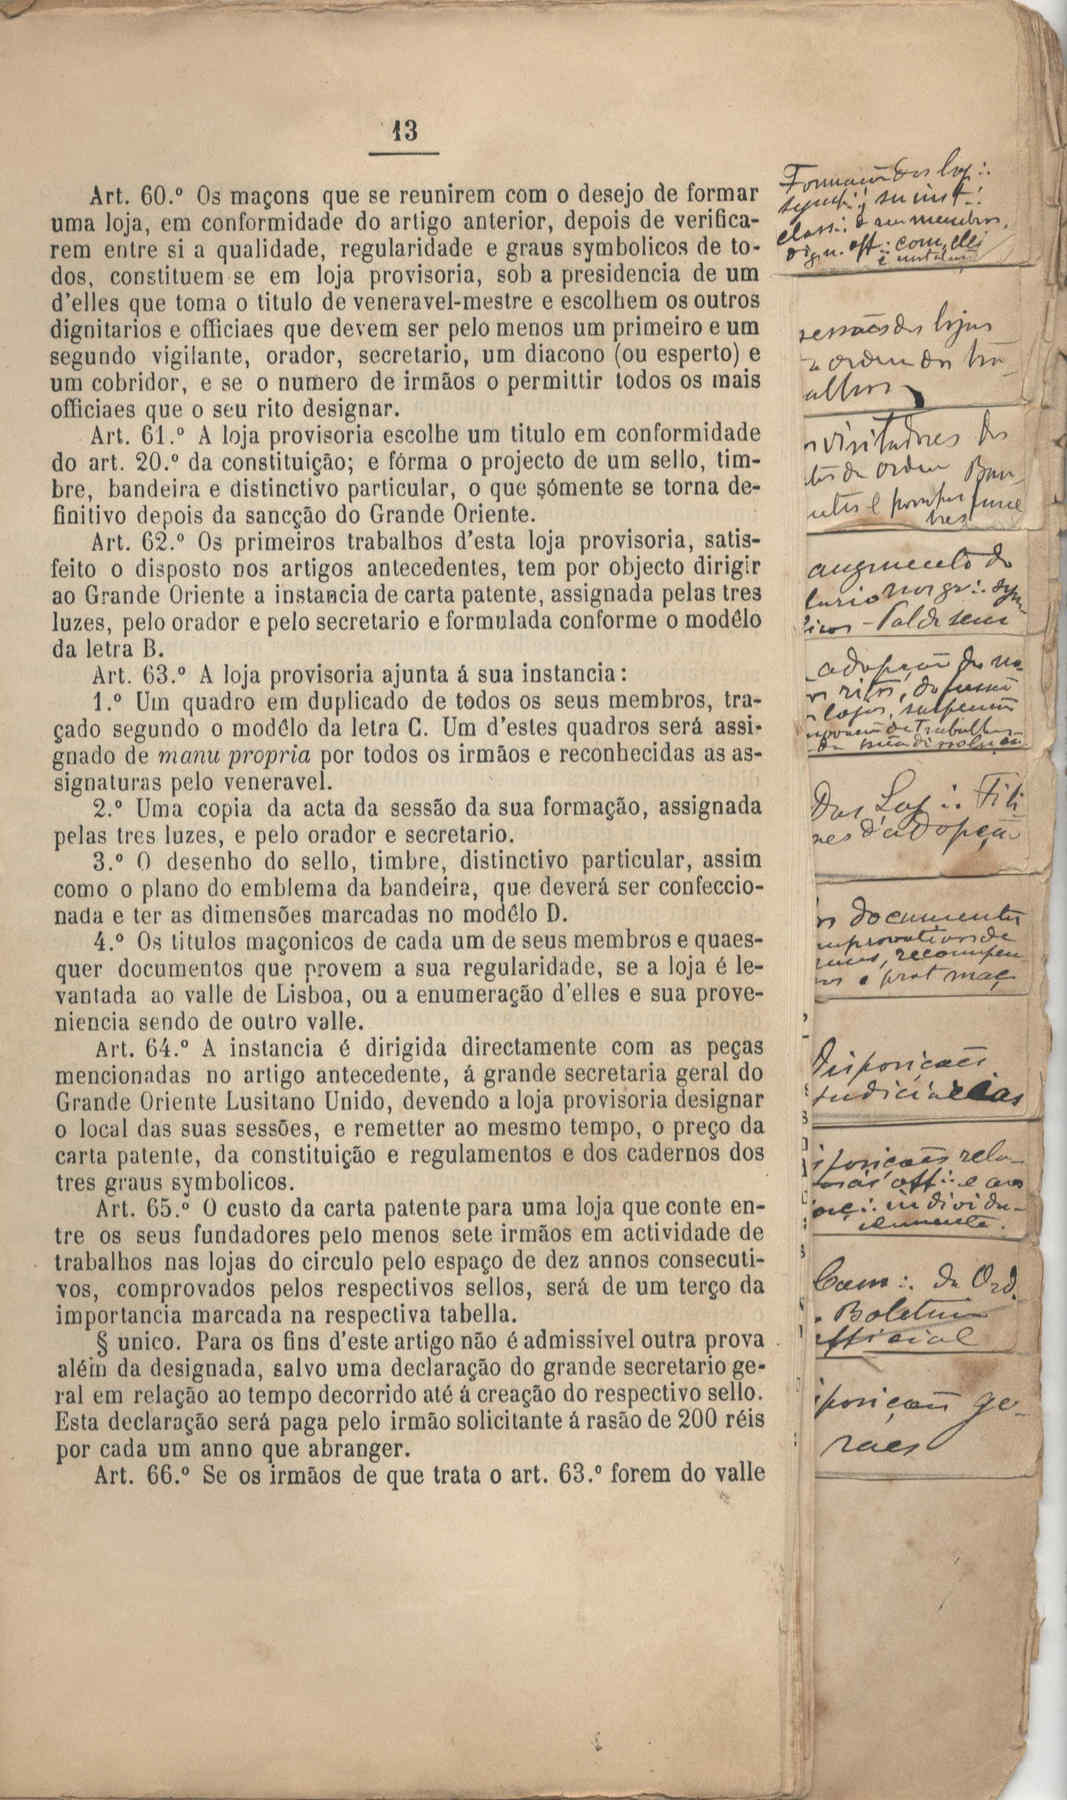 13
Art. 60.º Os maçons que se reunirem com o desejo de formar
uma loja, em conformidade do artigo anterior, depois de verifica-
rem entre si a qualidade, regularidade e graus symbolicos de to-
dos, constituem-se em loja provisoria, sob a presidencia de um
d'elles que toma o titulo de veneravel-mestre e escolhem os outros
dignitarios e officiaes que devem ser pelo menos um primeiro e um
segundo vigilante, orador, secretario, um diacono (ou esperto) e
um cobridor, e se o numero de irmãos o permittir todos os mais
officiaes que o seu rito designar.
Art. 61.º A loja provisoria escolhe um titulo em conformidade
do art. 20.º da constituição; e fórma o projecto de um sello, tim-
bre, bandeira e distinctivo particular, o que sómente se torna de-
finitivo depois da sancção do Grande Oriente.
Art. 62.º Os primeiros trabalhos d'esta loja provisoria, satis-
feito o disposto nos artigos antecedentes, tem por objecto dirigir
ao Grande Oriente a instancia de carta patente, assignada pelas tres
luzes, pelo orador e pelo secretario e formulada conforme o modêlo
da letra B.
Art. 63.º A loja provisoria ajunta á sua instancia:
1.º Um quadro em duplicado de todos os seus membros, tra-
çado segundo o modêlo da letra C. Um d'estes quadros será assi-
gnado de manu propria por todos os irmãos e reconhecidas as as-
signaturas pelo veneravel.
2.º Uma copia da acta da sessão da sua formação, assignada
pelas tres luzes, e pelo orador e secretario.
3.º O desenho do sello, timbre, distinctivo particular, assim
como o plano do emblema da bandeira, que deverá ser confeccio-
nada e ter as dimensões marcadas no modêlo D.
4.º Os titulos maçonicos de cada um de seus membros e quaes-
quer documentos que provem a sua regularidade, se a loja é le-
vantada ao valle de Lisboa, ou a enumeração d'elles e sua prove-
niencia sendo de outro valle.
Art. 64.º A instancia é dirigida directamente com as peças
mencionadas no artigo antecedente, á grande secretaria geral do
Grande Oriente Lusitano Unido, devendo a loja provisoria designar
o local das suas sessões, e remetter ao mesmo tempo, o preço da
carta patente, da constituição e regulamentos e dos cadernos dos
tres graus symbolicos.
Art. 65.º O custo da carta patente para uma loja que conte en-
tre os seus fundadores pelo menos sete irmãos em actividade de
trabalhos nas lojas do circulo pelo espaço de dez annos consecuti-
vos, comprovados pelos respectivos sellos, será de um terço da
importancia marcada na respectiva tabella.
§ unico. Para os fins d'este artigo não é admissivel outra prova
além da designada, salvo uma declaração do grande secretario ge-
ral em relação ao tempo decorrido até á creação do respectivo sello.
Esta declaração será paga pelo irmão solicitante á rasão de 200 réis
por cada um anno que abranger.
Art. 66.º Se os irmãos de que trata o art. 63.º forem do valle
Formação das loj∴
sessões das lojas
ordem dos tra-
alhos
visitadores
da ordem
augmento do
adopção de no-
ritos
lojas, suspensão
Das Loj∴ Fili
d'adopção
documentos
recompen
Disposições
judiciarias
posições rela-
off∴ e aos
individu-
almente.
Cam∴ da Ord.
Boletim
official
posições ge-
raes